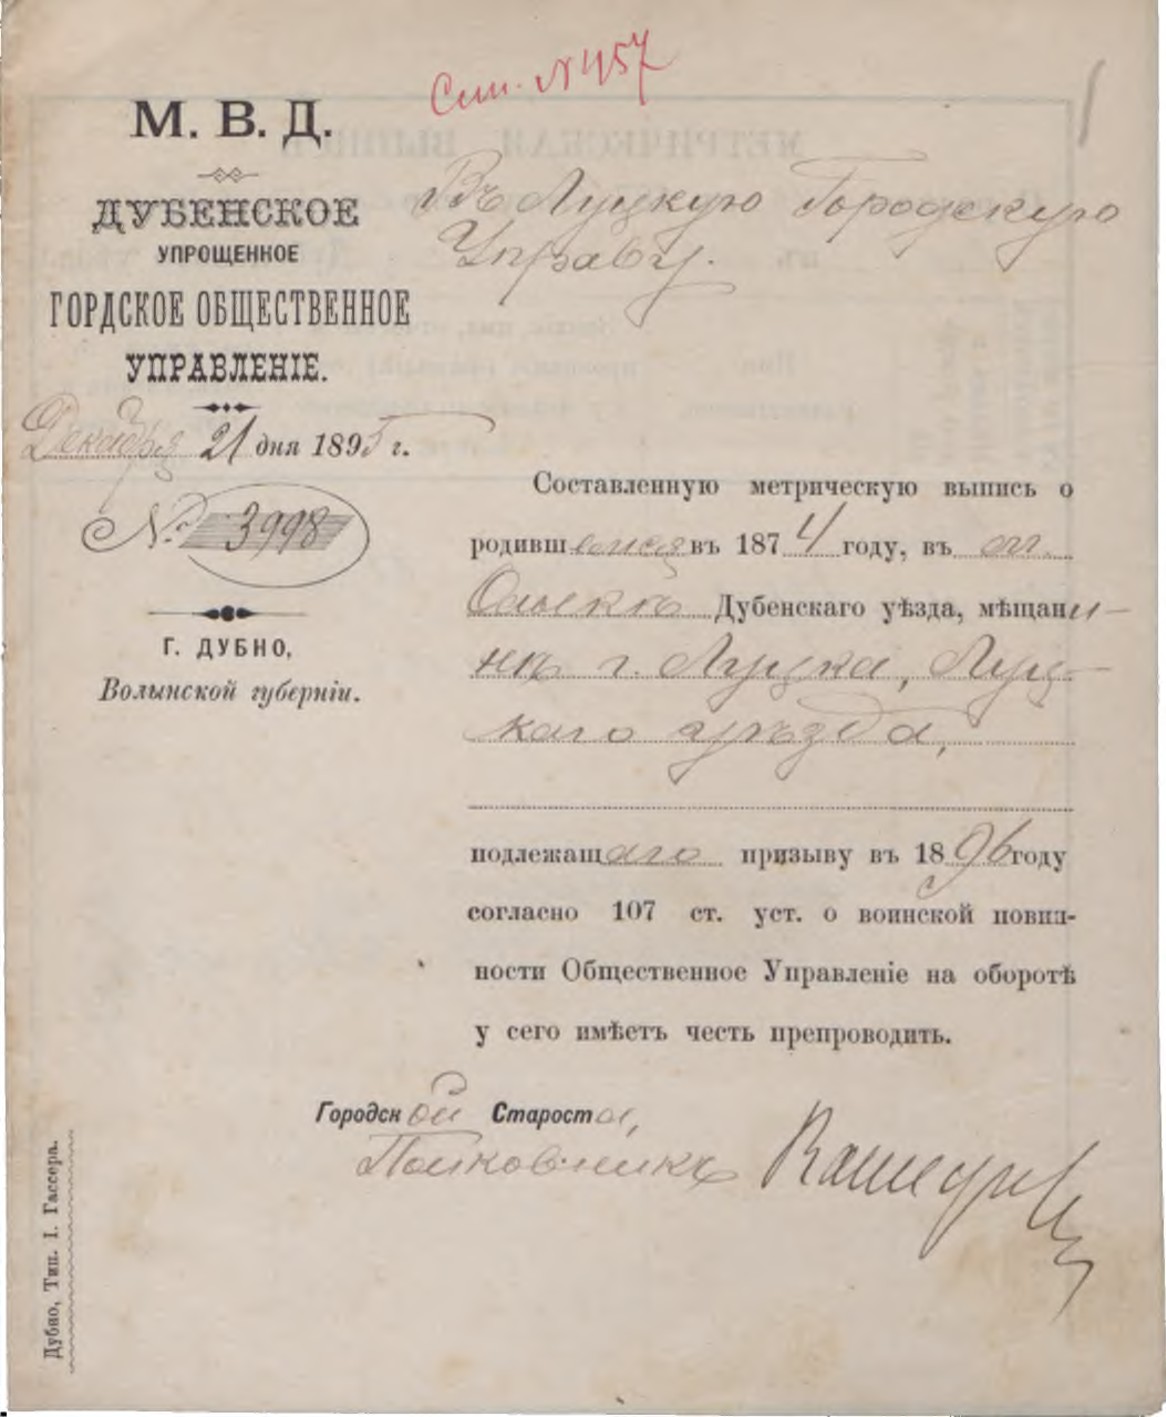 Сп. № 457
М. В. Д.
ДУБЕНСКОЕ
УПРОЩЕННОЕ
ГОРДСКОЕ ОБЩЕСТВЕННОЕ
УПРАВЛЕНІЕ.
Декабря 21 дня 1895 г.
№ 3998
Г. ДУБНО,
Волынской губерніи.
Въ Луцкую Городскую
Управу.
Составленную метрическую выпись о
родившемся въ 1874 году, въ м.
Олыкѣ Дубенскаго уѣзда, мѣщани-
нѣ г. Луцка, Луц-
каго уѣзда,
подлежащаго призыву въ 1896 году
согласно 107 ст. уст. о воинской повин-
ности Общественное Управленіе на оборотѣ
у сего имѣетъ честь препроводить.
Городской Староста,
Полковникъ
Дубно, Тип. І. Гассера.